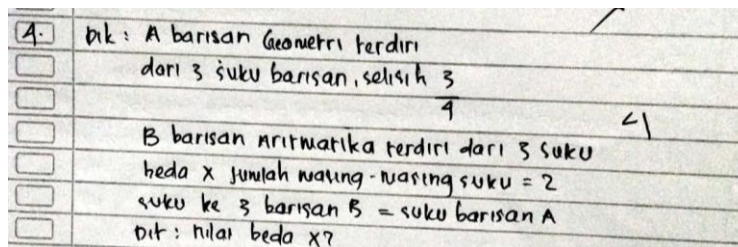 4. Dik : A barisan Geometri terdiri
dari 3 suku barisan, selisih 3
4
B barisan Aritmatika terdiri dari 3 suku
beda x jumlah masing-masing suku = 2
suku ke 3 barisan B = suku barisan A
Dit : nilai beda x?